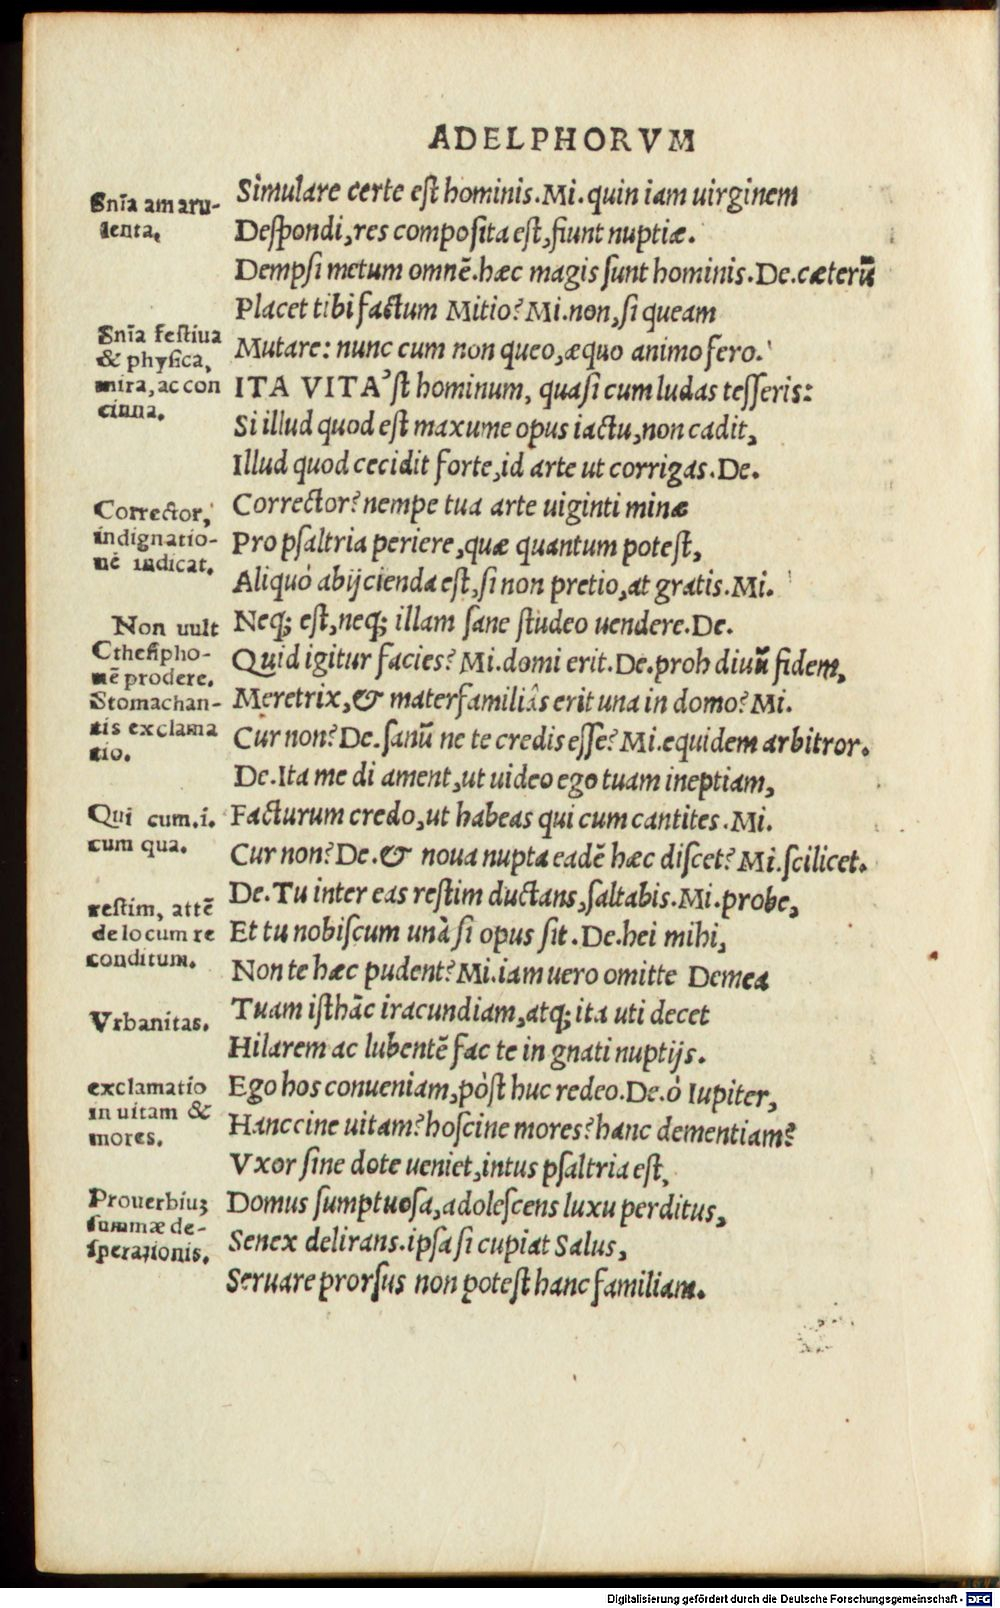 ADELPHORVM
Snīa amaru-
lenta.
Simulare certe eſt hominis. Mi. quin iam uirginem
Deſpondi, res compoſita eſt, fiunt nuptiæ.
Dempſi metum omnē. hæc magis ſunt hominis. De. cæterū
Placet tibi factum Mitio? Mi. non, ſi queam
Snīa feſtiua
& phyſica,
mira, ac con
cinna.
Mutare: nunc cum non queo, æquo animo fero.
ITA VITA'ſt hominum, quaſi cum ludas teſſeris:
Si illud quod eſt maxume opus iactu, non cadit,
Illud quod cecidit forte, id arte ut corrigas. De.
Corrector,
indignatio-
nē indicat.
Corrector? nempe tua arte uiginti minæ
Pro pſaltria periere, quæ quantum poteſt,
Aliquò abijcienda eſt, ſi non pretio, at gratis. Mi.
Non uult
Ctheſipho-
nē prodere.
Stomachan-
tis exclama
tio.
Neq; eſt, neq; illam ſane ſtudeo uendere. De.
Quid igitur facies? Mi. domi erit. De. proh diuū fidem,
Meretrix, & materfamiliâs erit una in domo? Mi.
Cur non? De. ſanū ne te credis eſſe? Mi. equidem arbitror.
De. Ita me di ament, ut uideo ego tuam ineptiam,
Qui cum .i.
cum qua.
Facturum credo, ut habeas qui cum cantites. Mi.
Cur non? De. & noua nupta eadē hæc diſcet? Mi. ſcilicet.
reſtim, attē
de locum re
conditum.
De. Tu inter eas reſtim ductans, ſaltabis. Mi. probe,
Et tu nobiſcum unà ſi opus ſit. De. hei mihi,
Non te hæc pudent? Mi. iam uero omitte Demea
Vrbanitas.
Tuam iſthāc iracundiam, atq; ita uti decet
Hilarem ac lubentē fac te in gnati nuptijs.
exclamatio
in uitam &
mores.
Ego hos conueniam, pòſt huc redeo. De. ô Iupiter,
Hanccine uitam? hoſcine mores? hanc dementiam?
Vxor ſine dote ueniet, intus pſaltria eſt,
Prouerbiuꝫ
ſummæ de-
ſperationis.
Domus ſumptuoſa, adoleſcens luxu perditus,
Senex delirans. ipſa ſi cupiat Salus,
Seruare prorſus non poteſt hanc familiam.
Digitalisierung gefördert durch die Deutsche Forschungsgemeinschaft - DFG